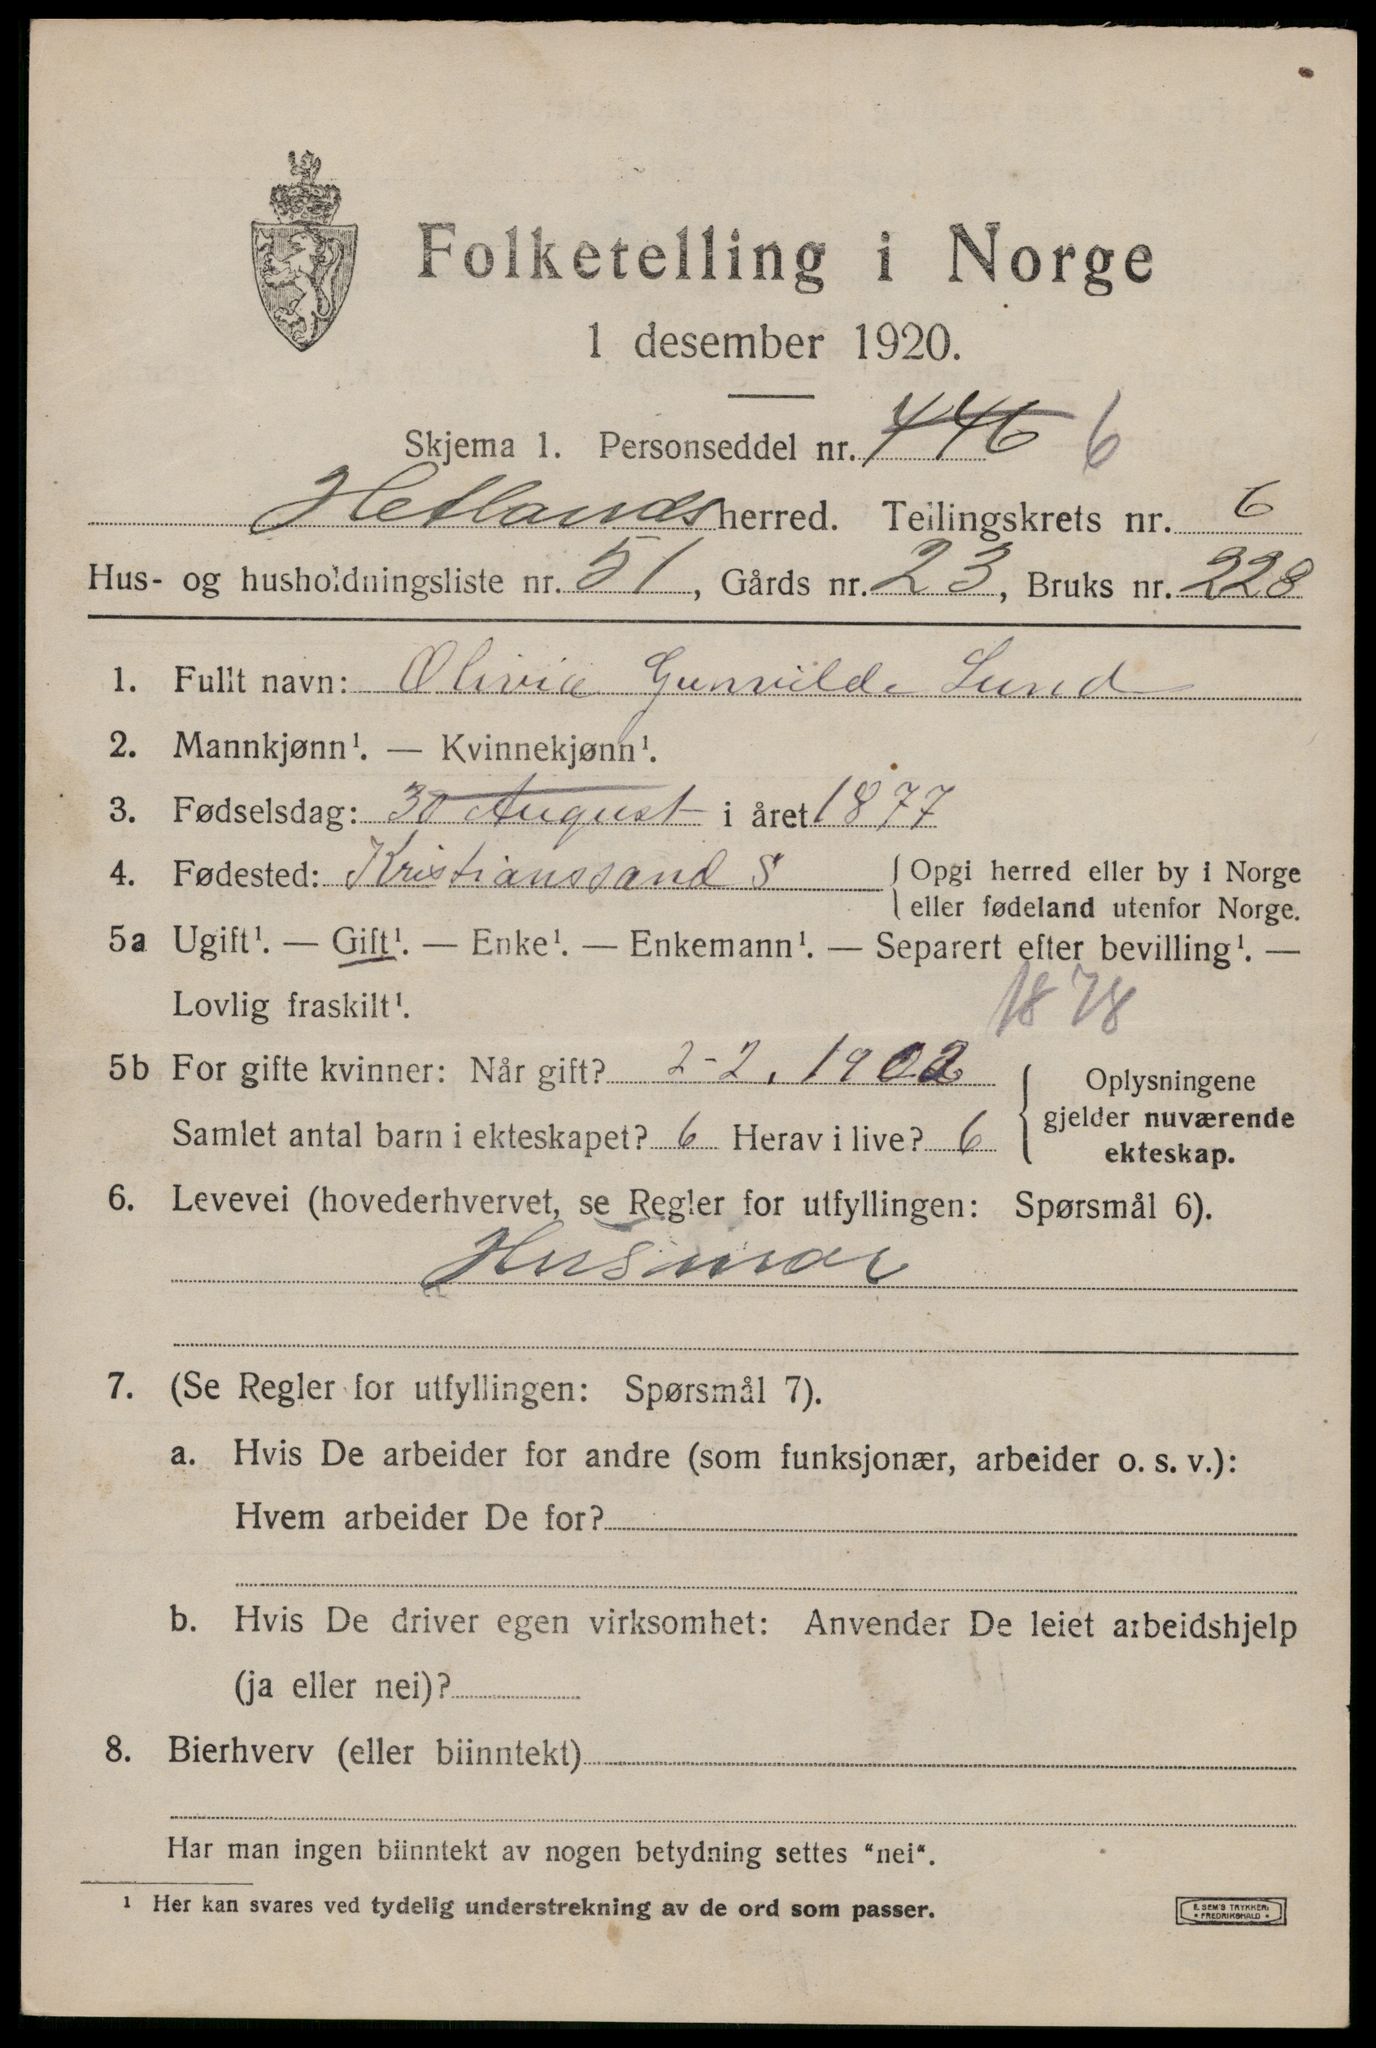 Folketelling i Norge
1 desember 1920.
Skjema 1. Personseddel nr. 446 6
Hetlands herred. Tellingskrets nr. 6
Hus- og husholdningsliste nr. 51, Gårds nr. 23, Bruks nr. 228
1. Fullt navn: Olivia Gunvilde Lund
2. Mannkjønn¹. — Kvinnekjønn¹.
3. Fødselsdag: 30 August i året 1877
4. Fødested: Kristianssand S { Opgi herred eller by i Norge
eller fødeland utenfor Norge.
5a Ugift¹. — Gift¹. — Enke¹. — Enkemann¹. — Separert efter bevilling¹. —
Lovlig fraskilt¹. 1878
5b For gifte kvinner: Når gift? 2-2. 1902
Samlet antal barn i ekteskapet? 6 Herav i live? 6
{ Oplysningene
gjelder nuværende
ekteskap.
6. Levevei (hovederhvervet, se Regler for utfyllingen: Spørsmål 6).
Husmor
7. (Se Regler for utfyllingen: Spørsmål 7).
a. Hvis De arbeider for andre (som funksjonær, arbeider o. s. v.):
Hvem arbeider De for?
b. Hvis De driver egen virksomhet: Anvender De leiet arbeidshjelp
(ja eller nei)?
8. Bierhverv (eller biinntekt)
Har man ingen biinntekt av nogen betydning settes "nei".
¹ Her kan svares ved tydelig understrekning av de ord som passer.
E. SEM'S TRYKKERI
• FREDRIKSHALD •